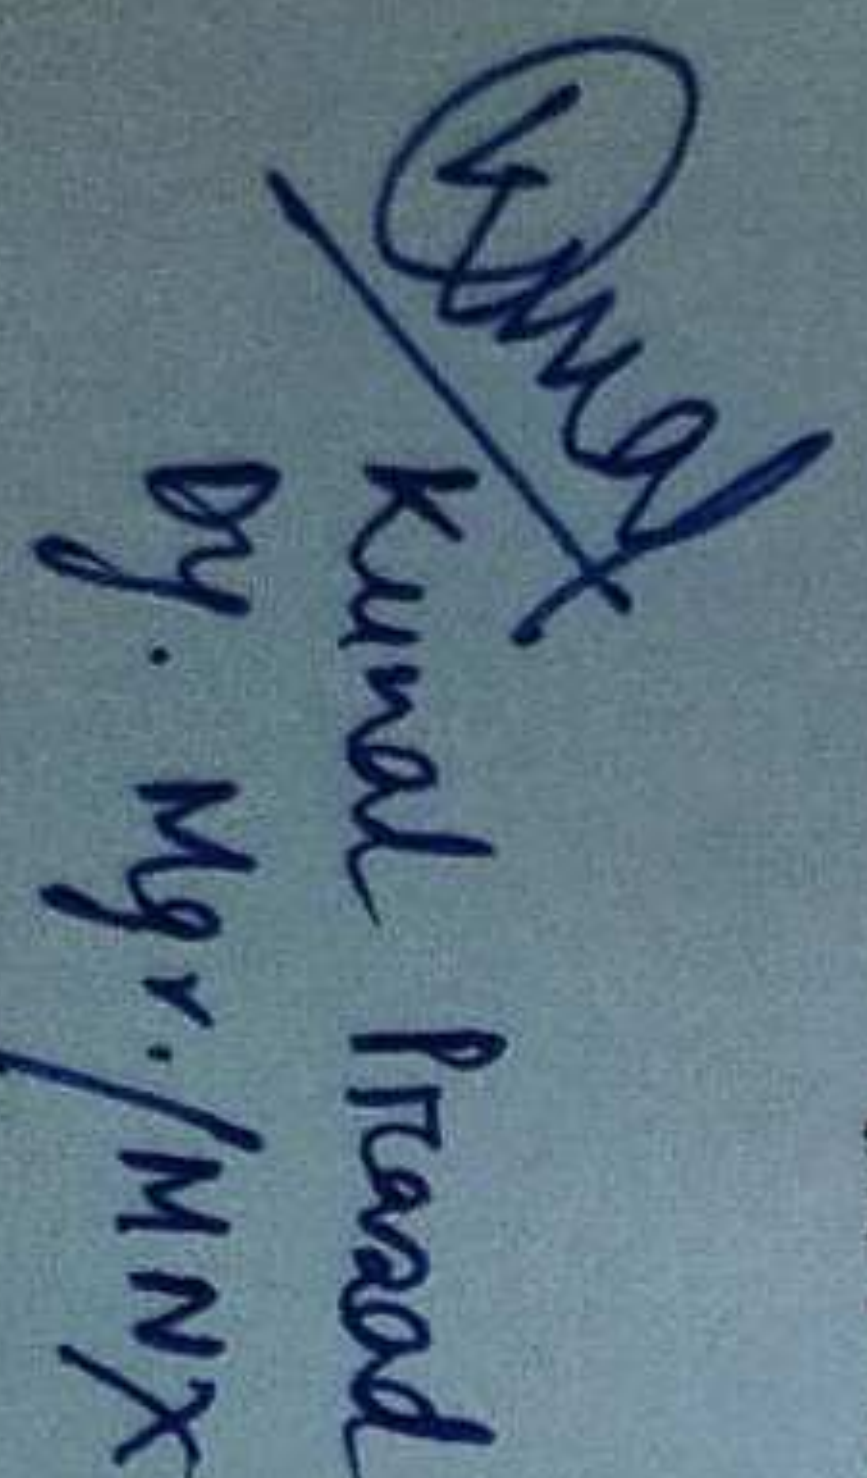 Kunal
Kunal Prasad
Dy. Mgr./MNX